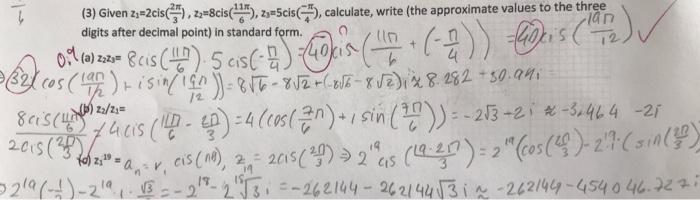 (3) Given z₁=2cis(2π/3), z₂=8cis(11π/6), z₃=5cis(-π/4), calculate, write (the approximate values to the three
digits after decimal point) in standard form.
(a) z₂z₃= 8cis(11π/6)·5cis(-π/4)=40cis(11π/6+(-π/4))=40cis(19π/12)
32(cos(19π/12)+isin(19π/12))=8√6-8√2+(-8√6-8√2)i≈8.282
(b) z₂/z₁=
8cis(11π/6)/2cis(2π/3) 4cis(11π/6-2π/3)=4(cos(7π/6)+isin(7π/6))=-2√3-2i≈-3.464-2i
z₁¹⁹= cis(nθ), z=2cis(2π/3)⇒2¹⁹cis(19·2π/3)=2¹⁹(cos(2π/3)-2¹⁹i(sin(2π/3)
2¹⁹(-1/2)-2¹⁹·i·√3/2=-2¹⁸-2¹⁸√3i=-262144-262144√3i≈-262144-454046.727i